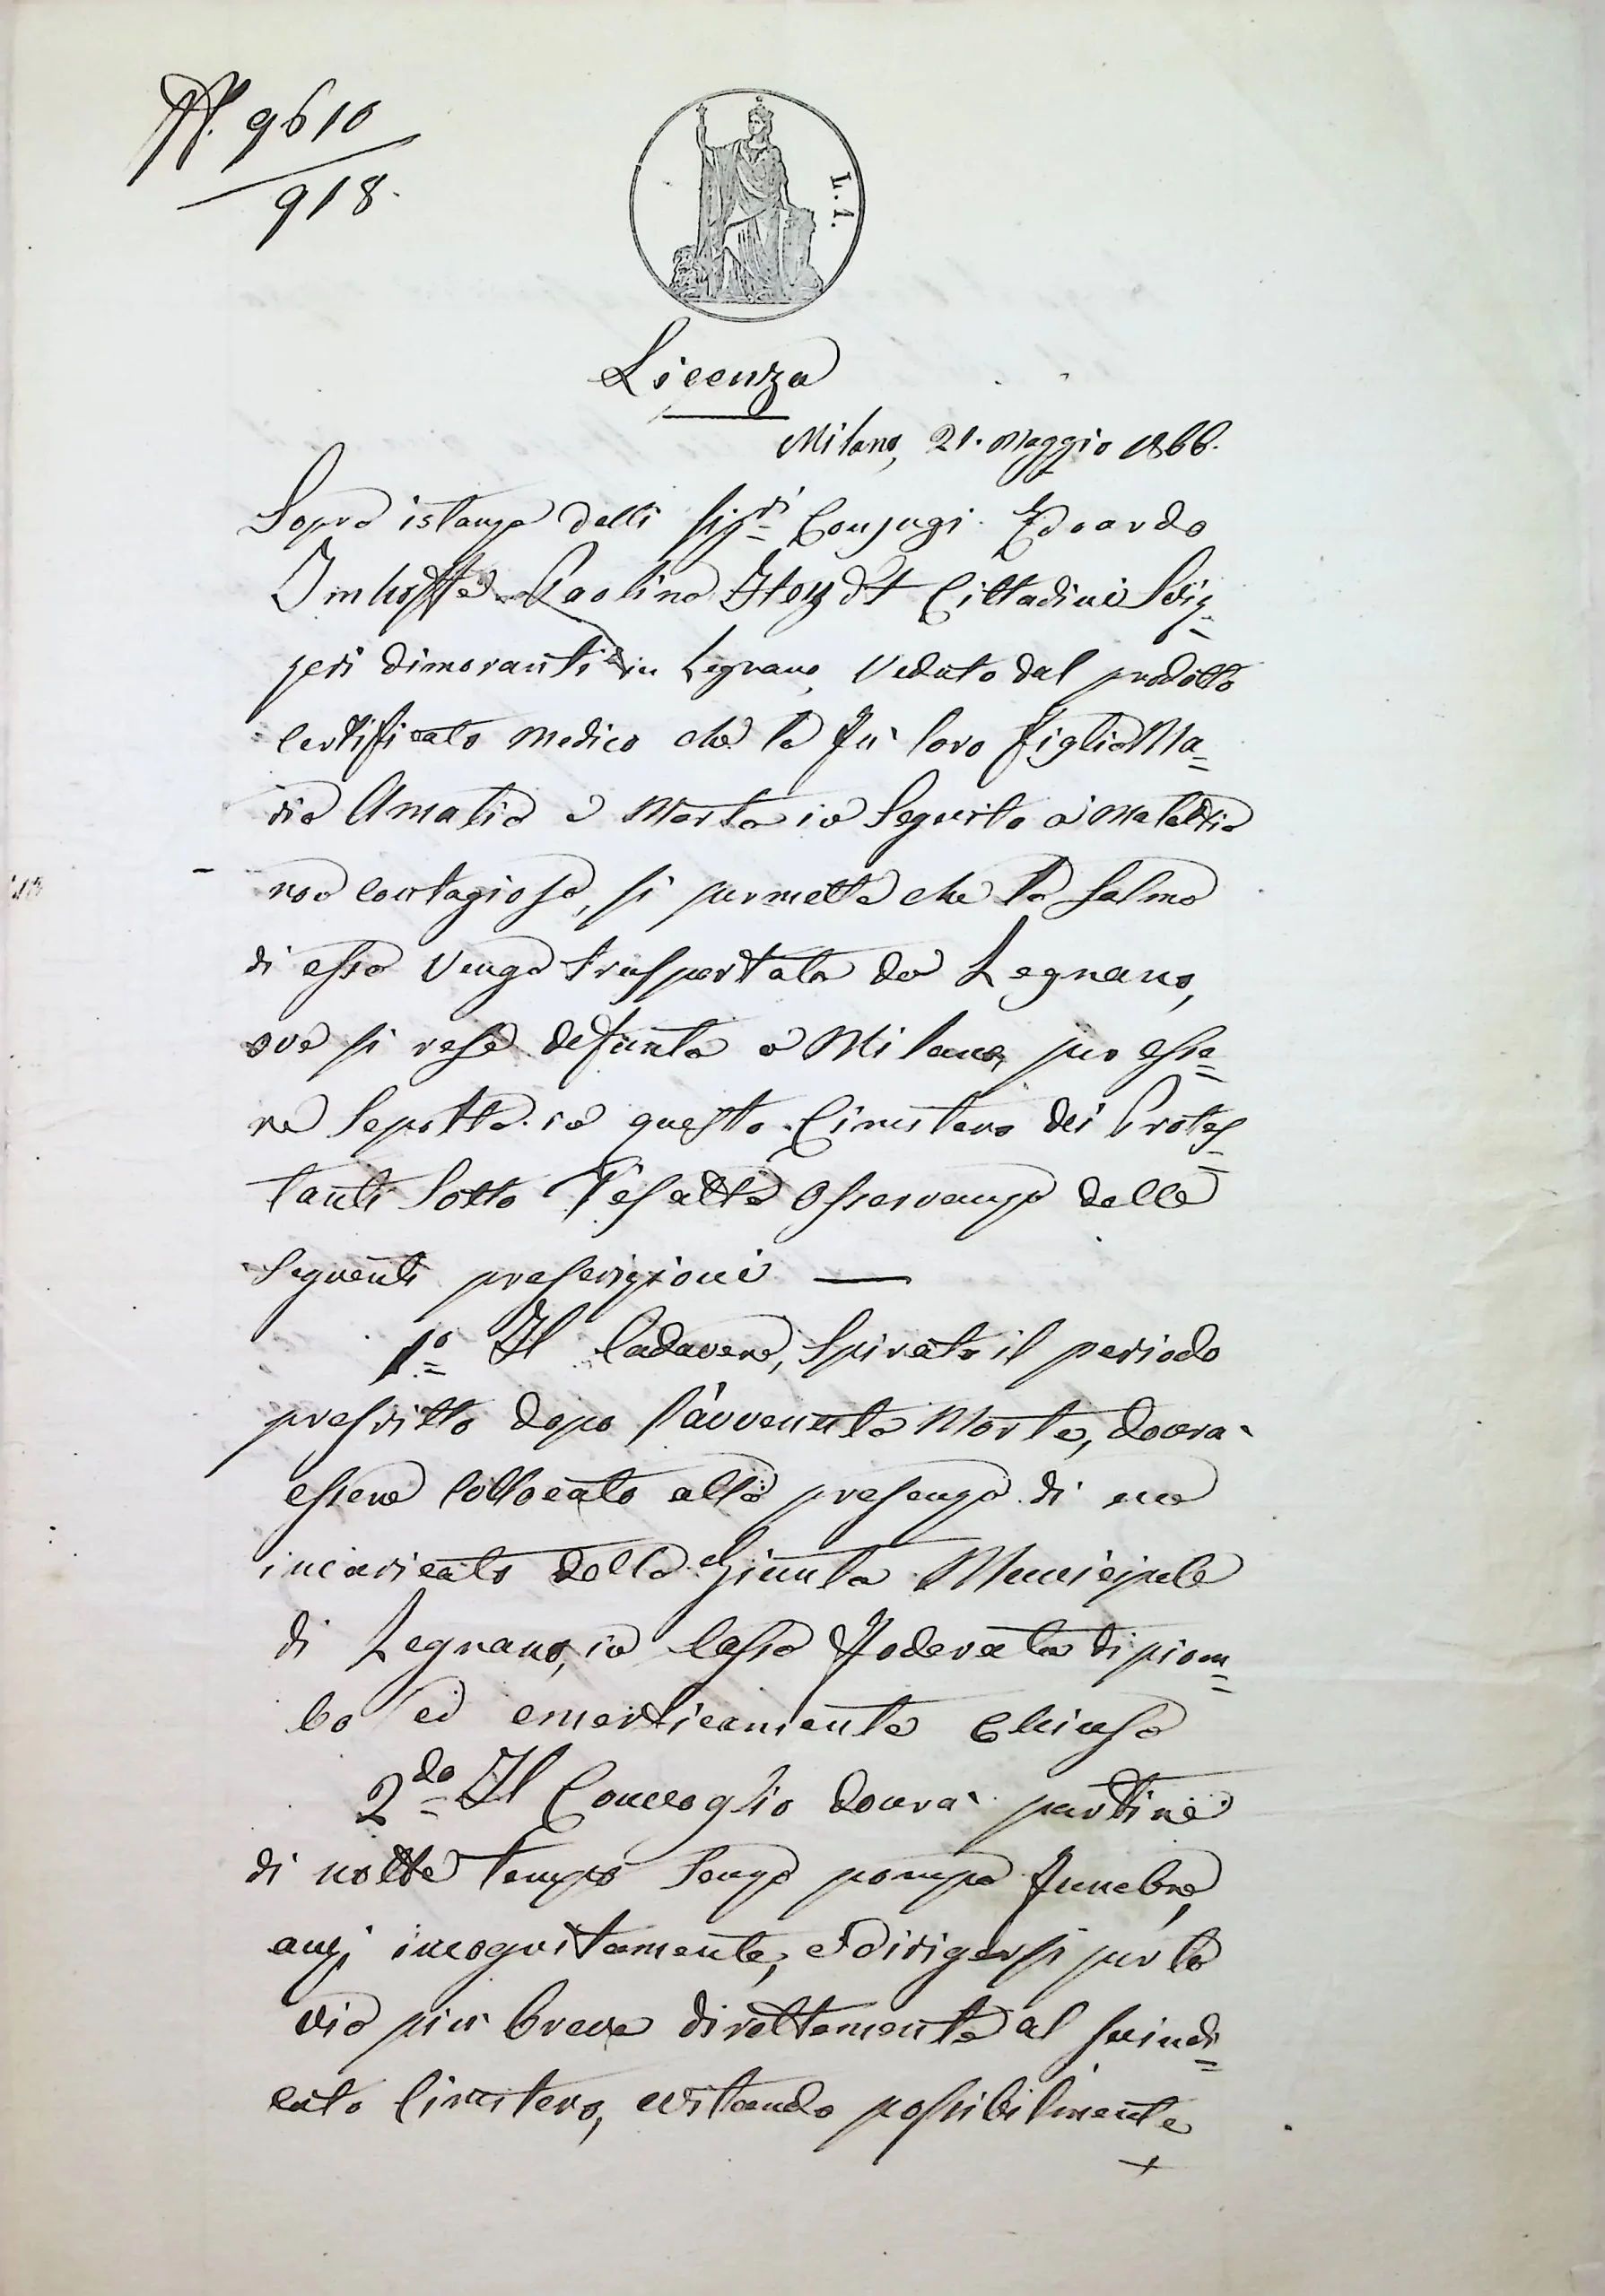 N. 9610
918.
L. 1.
Licenza
Milano, 21. Maggio 1866.
Sopra istanza delli Sigri Conjugi Edoardo
Imhoff e Paolina Steydt Cittadini Sviz=
zeri dimoranti in Legnano, Veduto dal prodotto
Certificato Medico che la fu loro figlia Ma=
ria Amalia è Morta in Seguito a Malattia
non Contagiosa, si permette che la Salma
di essa Venga trasportata da Legnano,
ove si rese defunta a Milano, per esse=
re Sepolta in questo Cimitero dei Protes=
tanti Sotto l'esatta Osservanza delle
Seguenti prescrizioni —
1º Il Cadavere, Spirato il periodo
prescritto dopo l'avvenuta Morte, dovra`
essere Collocato alla presenza di un
incaricato della Giunta Municipale
di Legnano, in Cassa foderata di piom=
bo ed emerticamente Chiusa
2do Il Convoglio dovra` partire
di notte tempo Senza pompa funebre,
anzi incognitamente, e dirigersi per la
via piu` breve direttamente al suindi=
cato Cimitero, evitando possibilmente
+